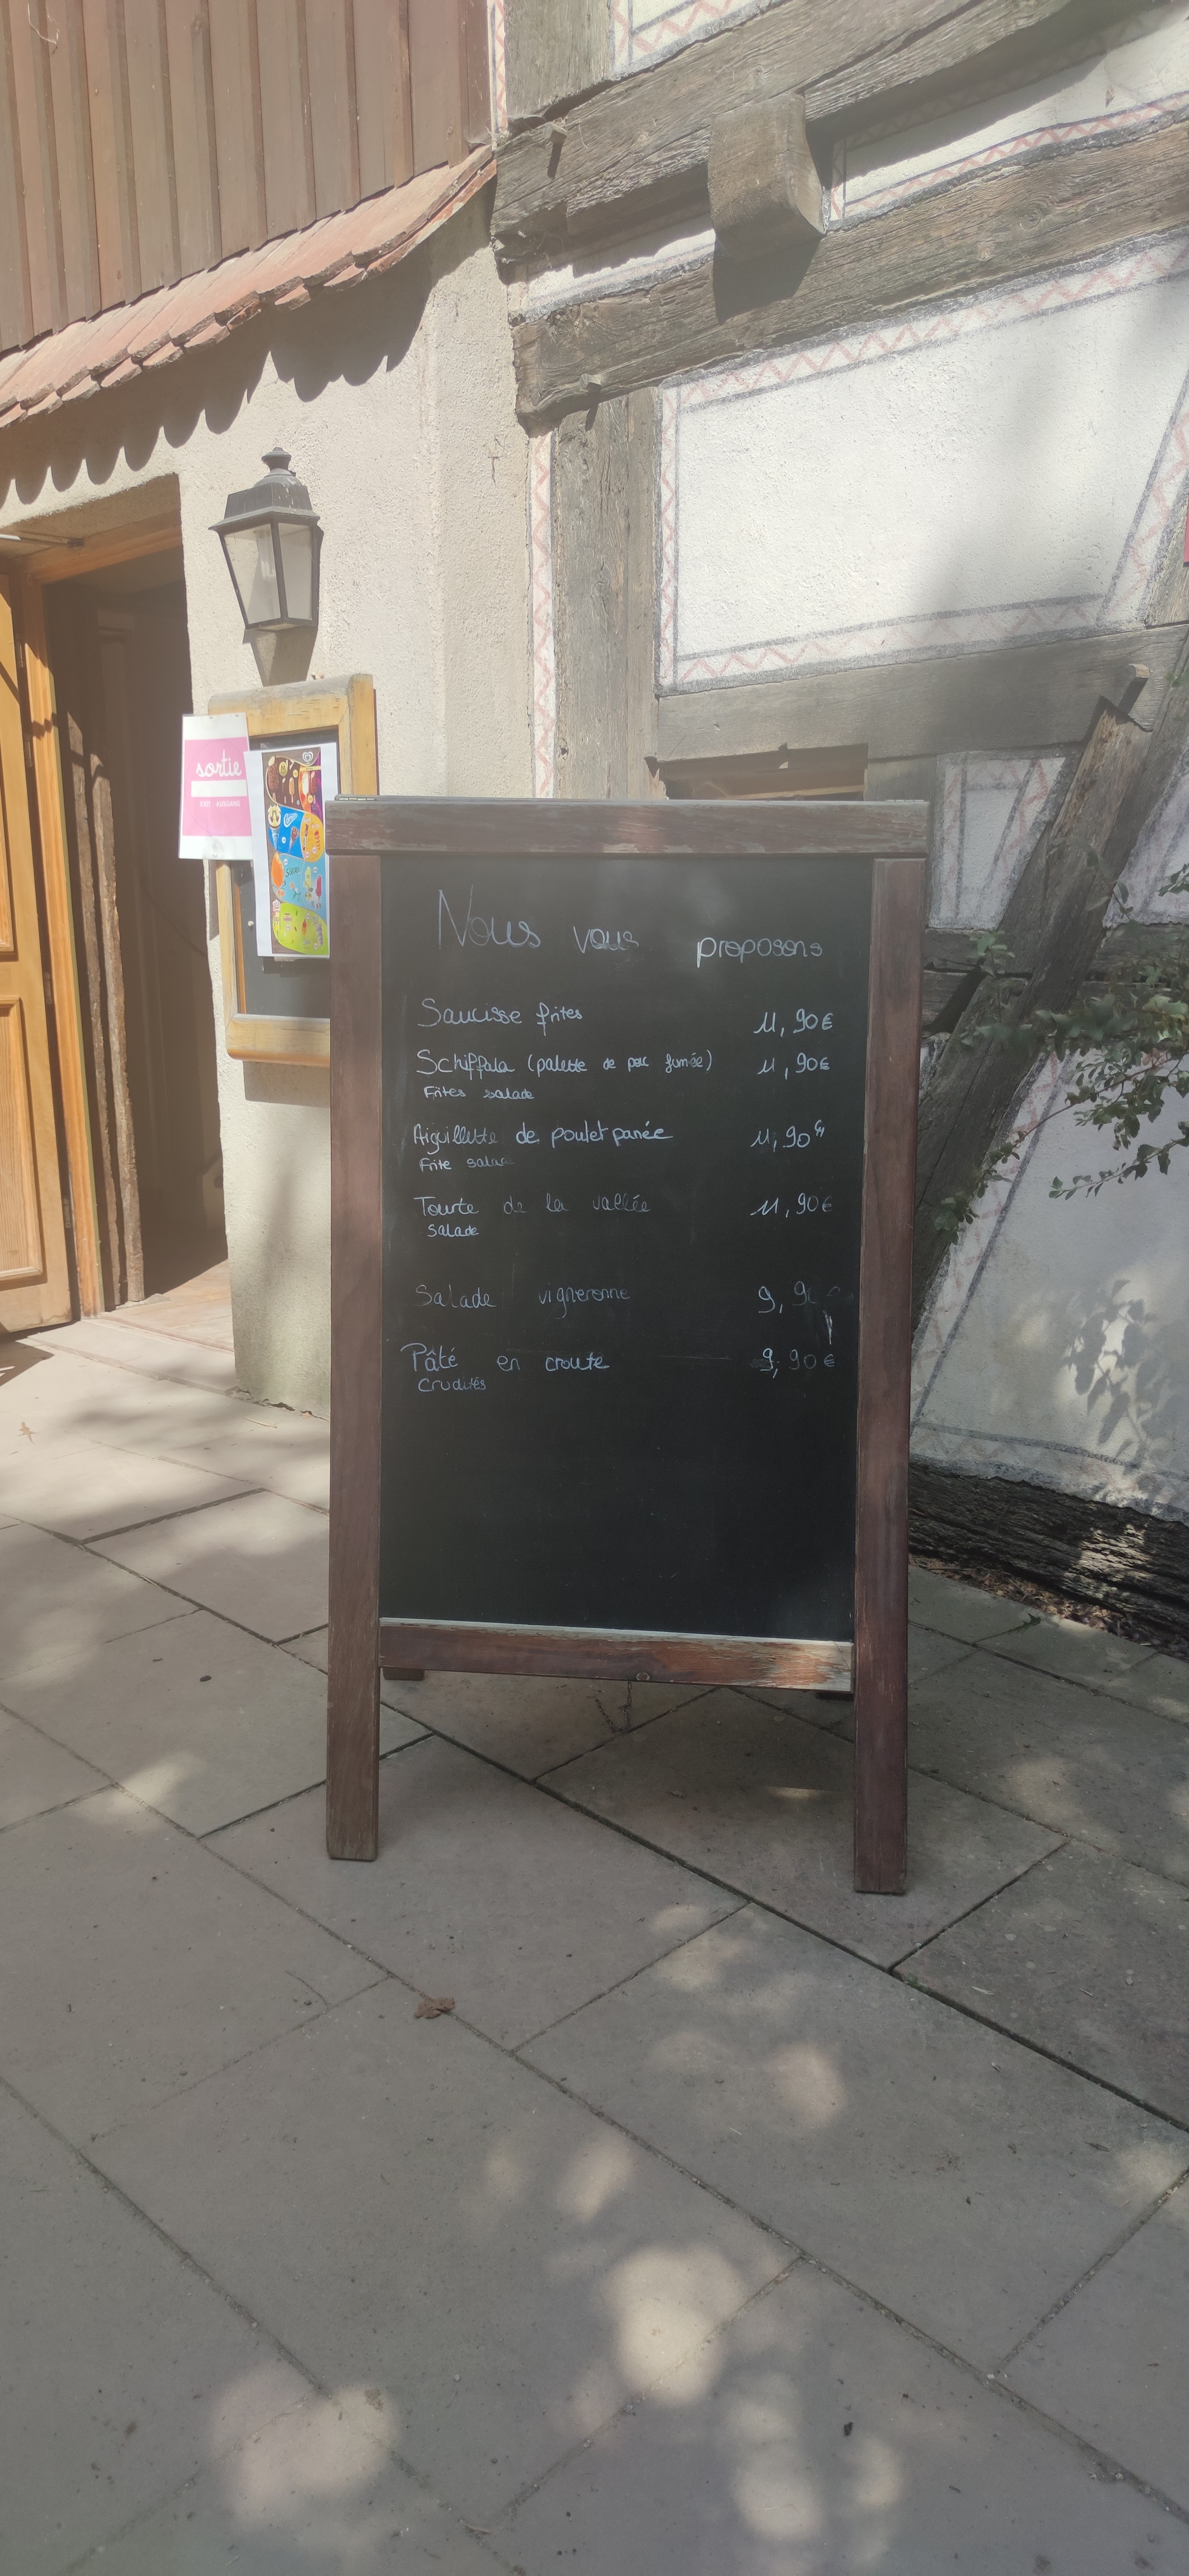 sortie
EXIT - AUSGANG
Nous vous proposons
Saucisse frites 11,90€
Schiffala (palette de porc fumée) 11,90€
Frites salade
Aiguillette de poulet panée 11,90€
Frite salade
Tourte de la vallée 11,90€
salade
Salade vigneronne 9,90€
Pâté en croute 9,90€
Crudités